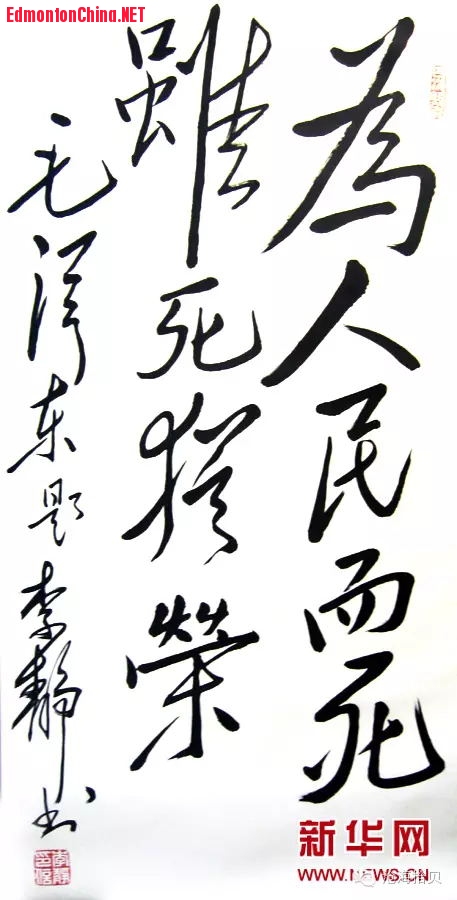 EdmontonChina.NET
為人民而死
雖死猶榮
毛泽东题李静书
新华网
WWW.NEWS.CN
海拾贝